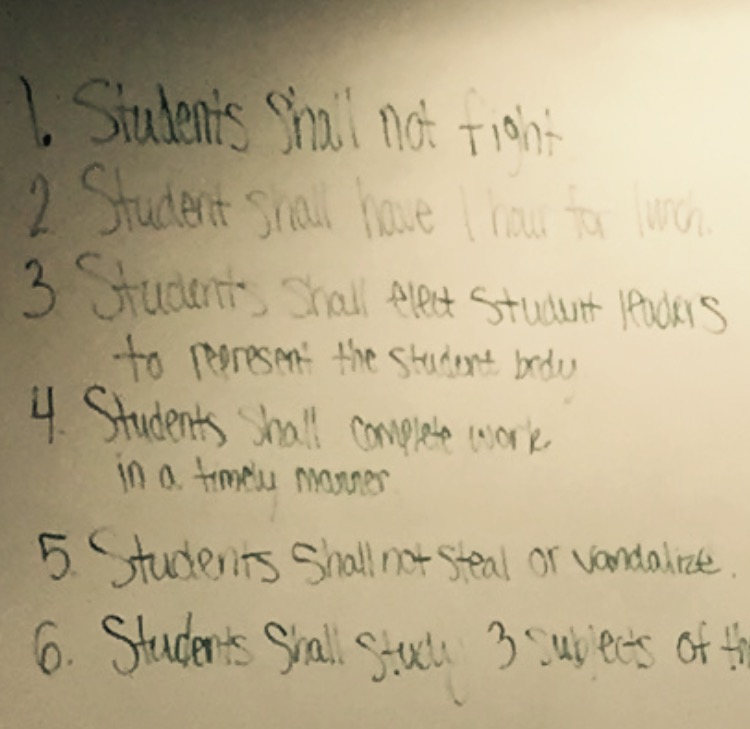 1. Students shall not fight
2 Student shall have 1 hour for lunch.
3 Students shall elect student leaders
to represent the student body
4. Students shall complete work
in a timely manner
5. Students shall not steal or vandalize.
6. Students shall study 3 subjects of